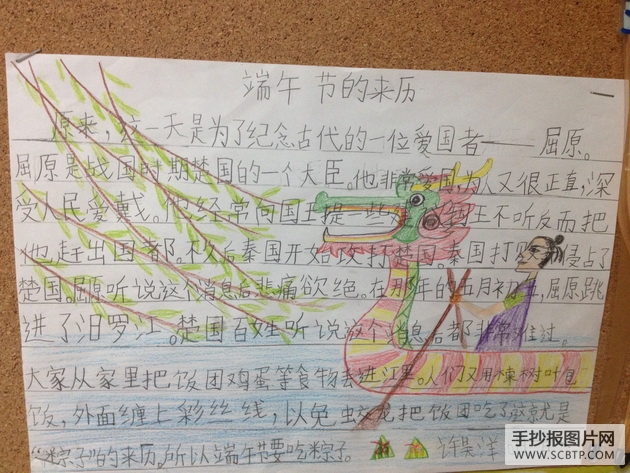 端午节的来历
原来，这一天是为了纪念古代的一位爱国者——屈原。
屈原是战国时期楚国的一个大臣。他非常爱国，为人又很正直，深
受人民爱戴。他经常向国王提一些 国王不听反而把
他赶出国都。不久后秦国开始攻打楚国。秦国打 侵占了
楚国。屈原听说这个消息后悲痛欲绝。在那年的五月初五，屈原跳
进了汨罗江。楚国百姓听说这个消息后都非常难过。
大家从家里把饭团鸡蛋等食物丢进江里。人们又用楝树叶包
饭，外面缠上彩丝线，以免蛟龙把饭团吃了这就是
“粽子”的来历。所以端午节要吃粽子。 许昊洋
手抄报图片网
WWW.SCBTP.COM